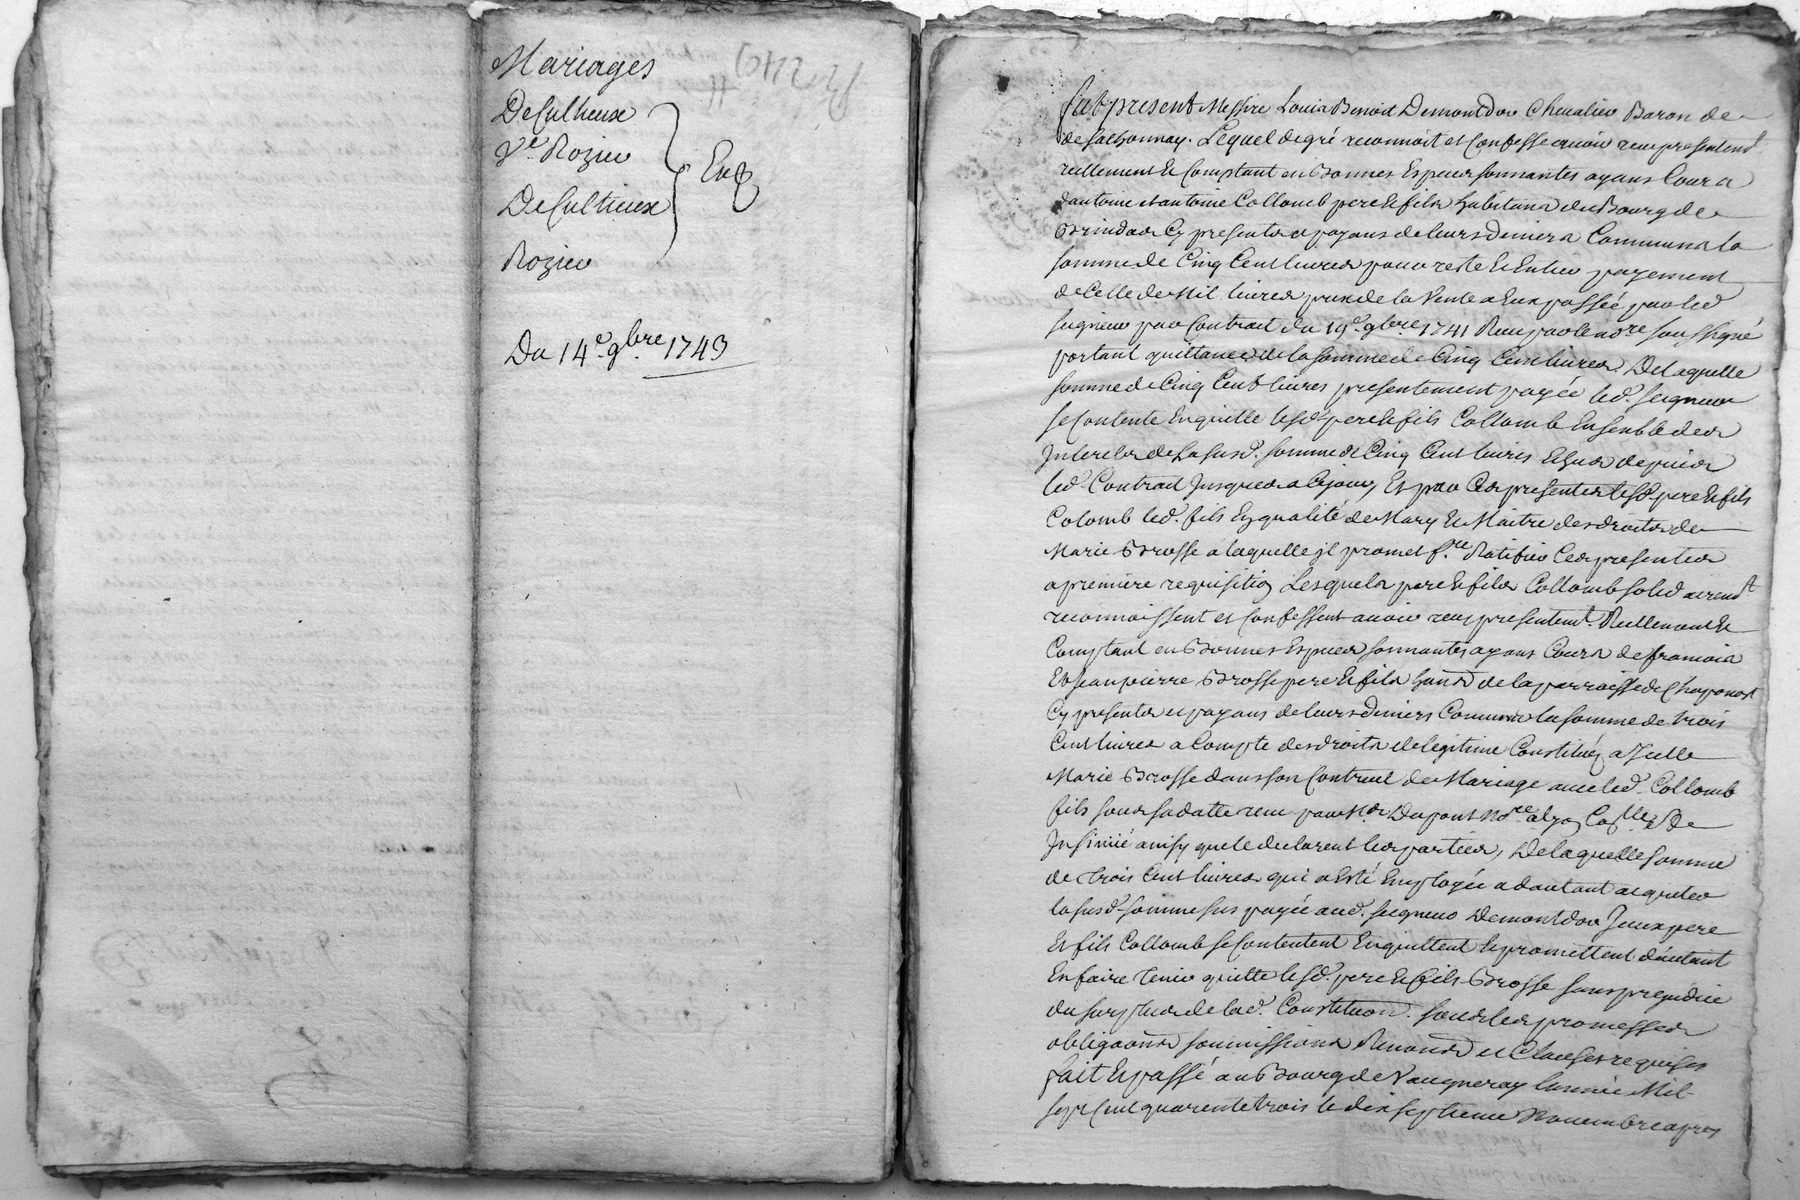 Mariages
DeCultieux
V.e Rozier
DeCultieux
Rozier
Exp
Du 14.e 9bre 1743
fut present Messire Louis Benoit Demontdor Chevalier Baron de
de Lequel de gré reconnoit et Confesse avoir reçu presentemt.
reellement & Comptant en Bonnes Especes sonnantes ayans Cours
dantoine et antoine Collomb pere & fils habitans du Bourg de
Brindas Cy presents et payans de leurs deniers Communs la
somme de Cinq Cent livres pour reste & Entier payement
de Celle de Mil livres prix de la Vente a Eux passée par led.
seigneur par Contrat du 19.e 9bre 1741 Reçu par le no.re soussigné
portant quittance de la somme de Cinq Cent livres, De laquelle
somme de Cinq Cent livres presentement payée led. seigneur
se Contente En quitte lesd. pere & fils Collomb Ensemble des
Interets de la susd. somme de Cinq Cent livres Echus depuis
led. Contrat Jusques a Cejour, Et par Ces presentes lesd. pere & fils
Colomb led. fils En qualité de Mary & Maitre des droits de
Marie Brosse a laquelle jl promet f.re Ratifier Ces presentes
a premiere requisition Lesquels pere & fils Collomb solidairemt
reconnoissent et Confessent avoir reçu presentemt. Reellement &
Comptant en Bonnes Especes sonnantes ayans Cours de francois
Et Jean pierre Brosse pere & fils hants de la parroisse de Chaponost
Cy presents et payans de leurs deniers Communs la somme de trois
Cent livres a Compte des droits de legitime Constitués a Jcelle
Marie Brosse dans son Contract de Mariage avec led. Collomb
fils sous sa datte reçu par M.e Dupont No.re a lyon Co.lle &
Insinué ainsy que le declarent les parties, De laquelle somme
de trois Cent livres qui a Esté Employée a dautant acquiter
la susd. somme sus payée aud. seigneur Demontdor Jceux pere
& fils Collomb se Contentent En quittent & promettent d'autant
En faire tenir quitte lesd. pere & fils Brosse sans prejudice
du surplus de lad. Constitution. sous les promesses
obligaons soumissions Renons et Clauses requises
fait & passé au Bourg de Vaugneray l'année Mil
sept Cent quarente trois le dix septieme Novembre apres